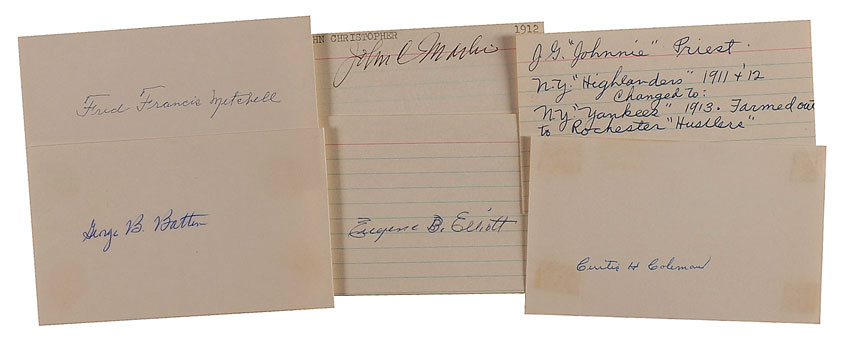 Fred Francis Mitchell
HN CHRISTOPHER 1912
John C Martin
J. G. "Johnnie" Priest.
N.Y. "Highlanders" 1911 + '12
Changed to:
N.Y. "Yankees" 1913. Farmed out
to Rochester "Hustlers"
George B. Batten
Eugene B. Elliott
Curtis H Coleman